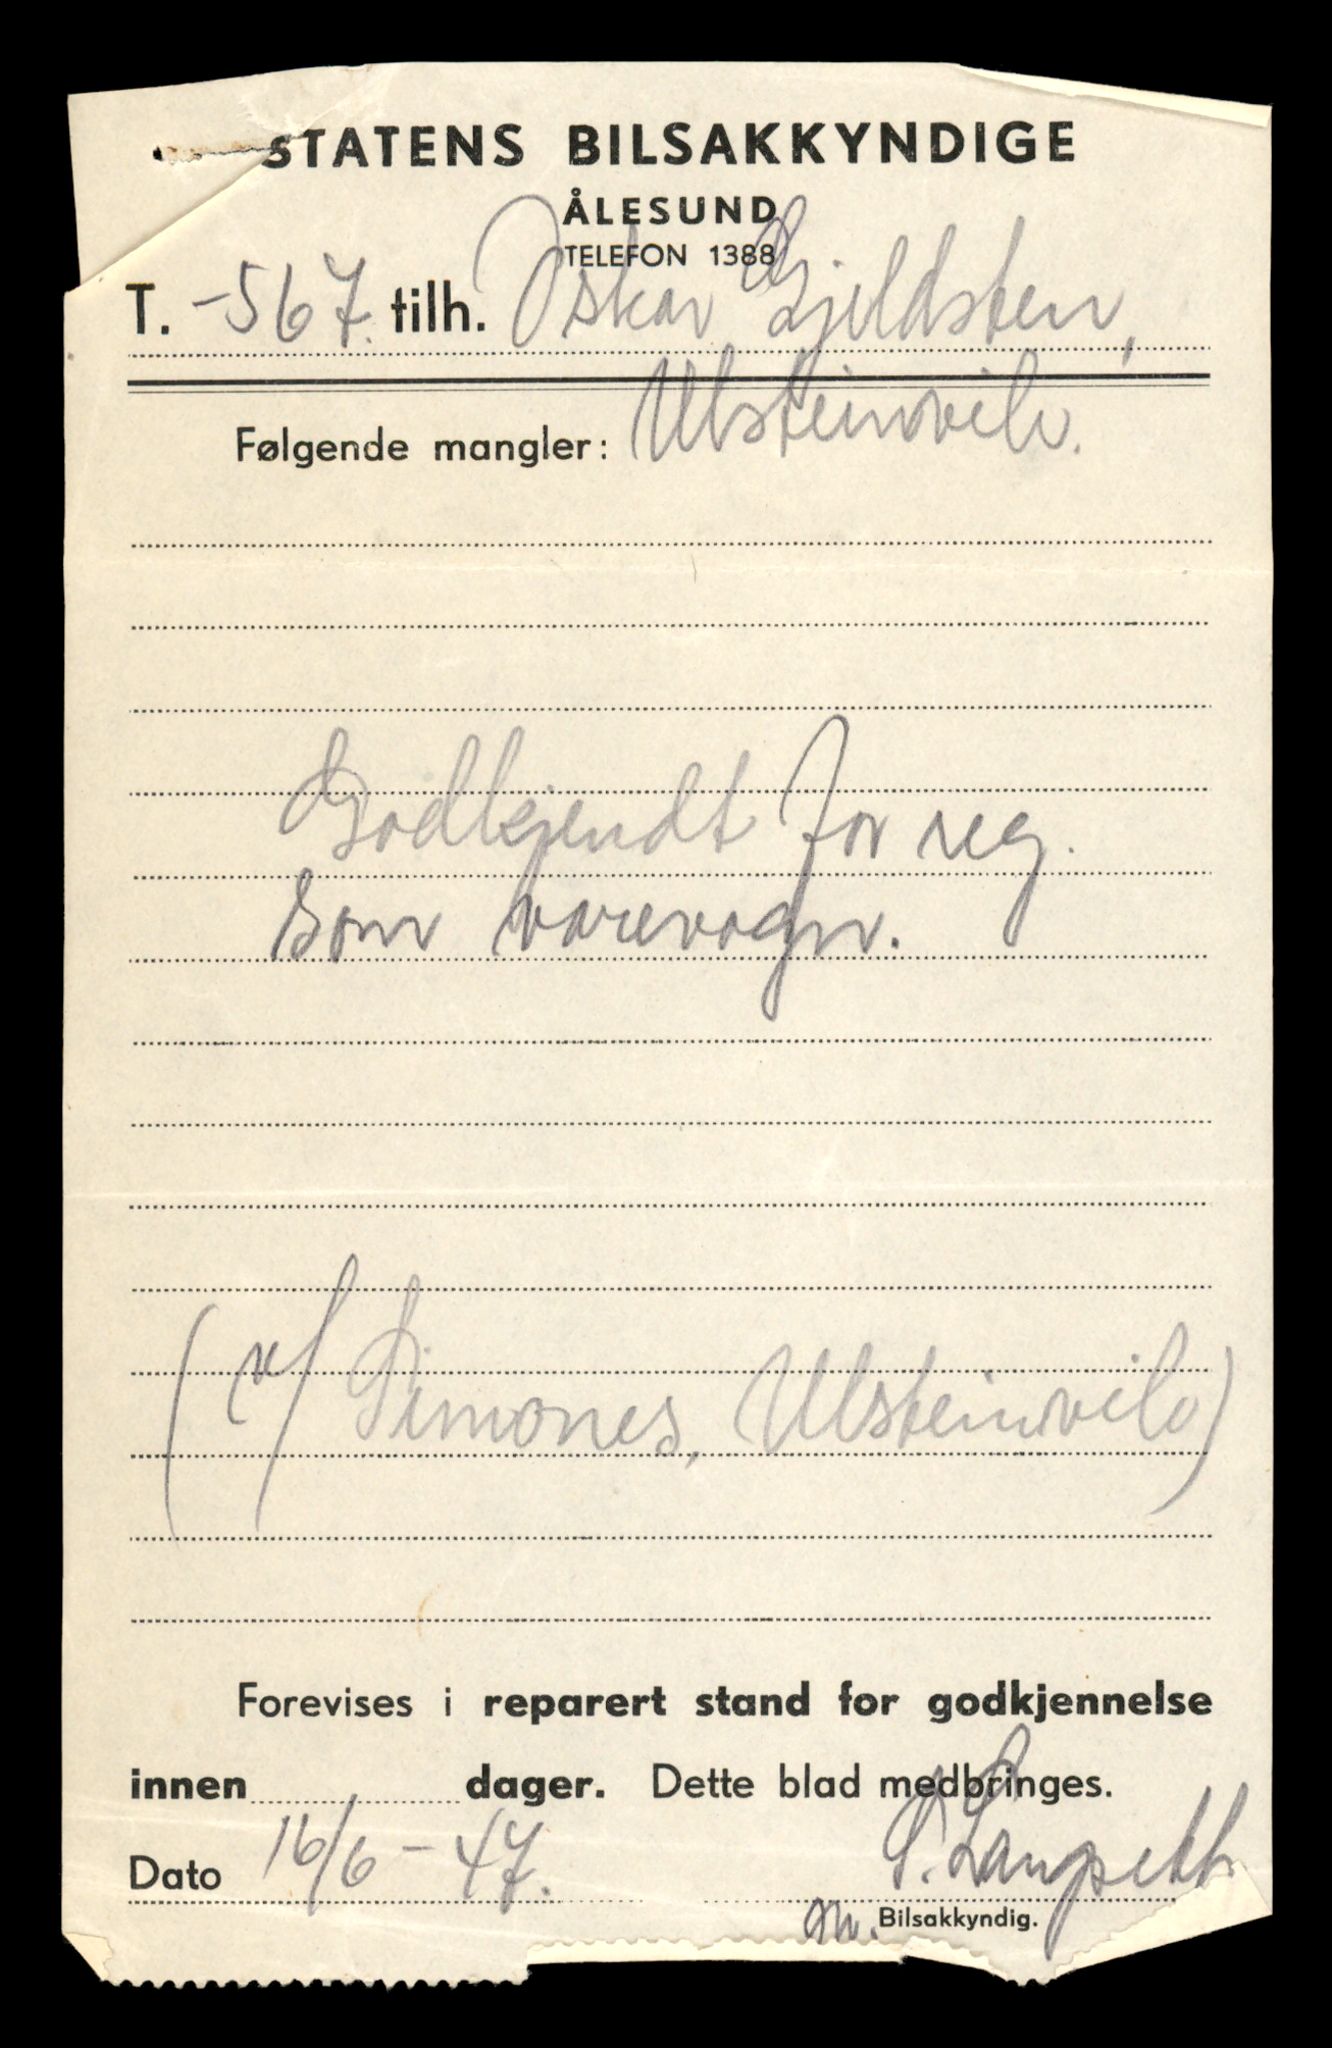 STATENS BILSAKKYNDIGE
ÅLESUND
TELEFON 1388
T. -567. tilh. Oskar Gjeldsten,
Følgende mangler: Ulsteinvik.
Godkjendt for reg.
som varevogn.
(v/ Simones, Ulsteinvik)
Forevises i reparert stand for godkjennelse
innen dager. Dette blad medbringes.
Dato 16/6-47. S. Langseth
Bilsakkyndig.